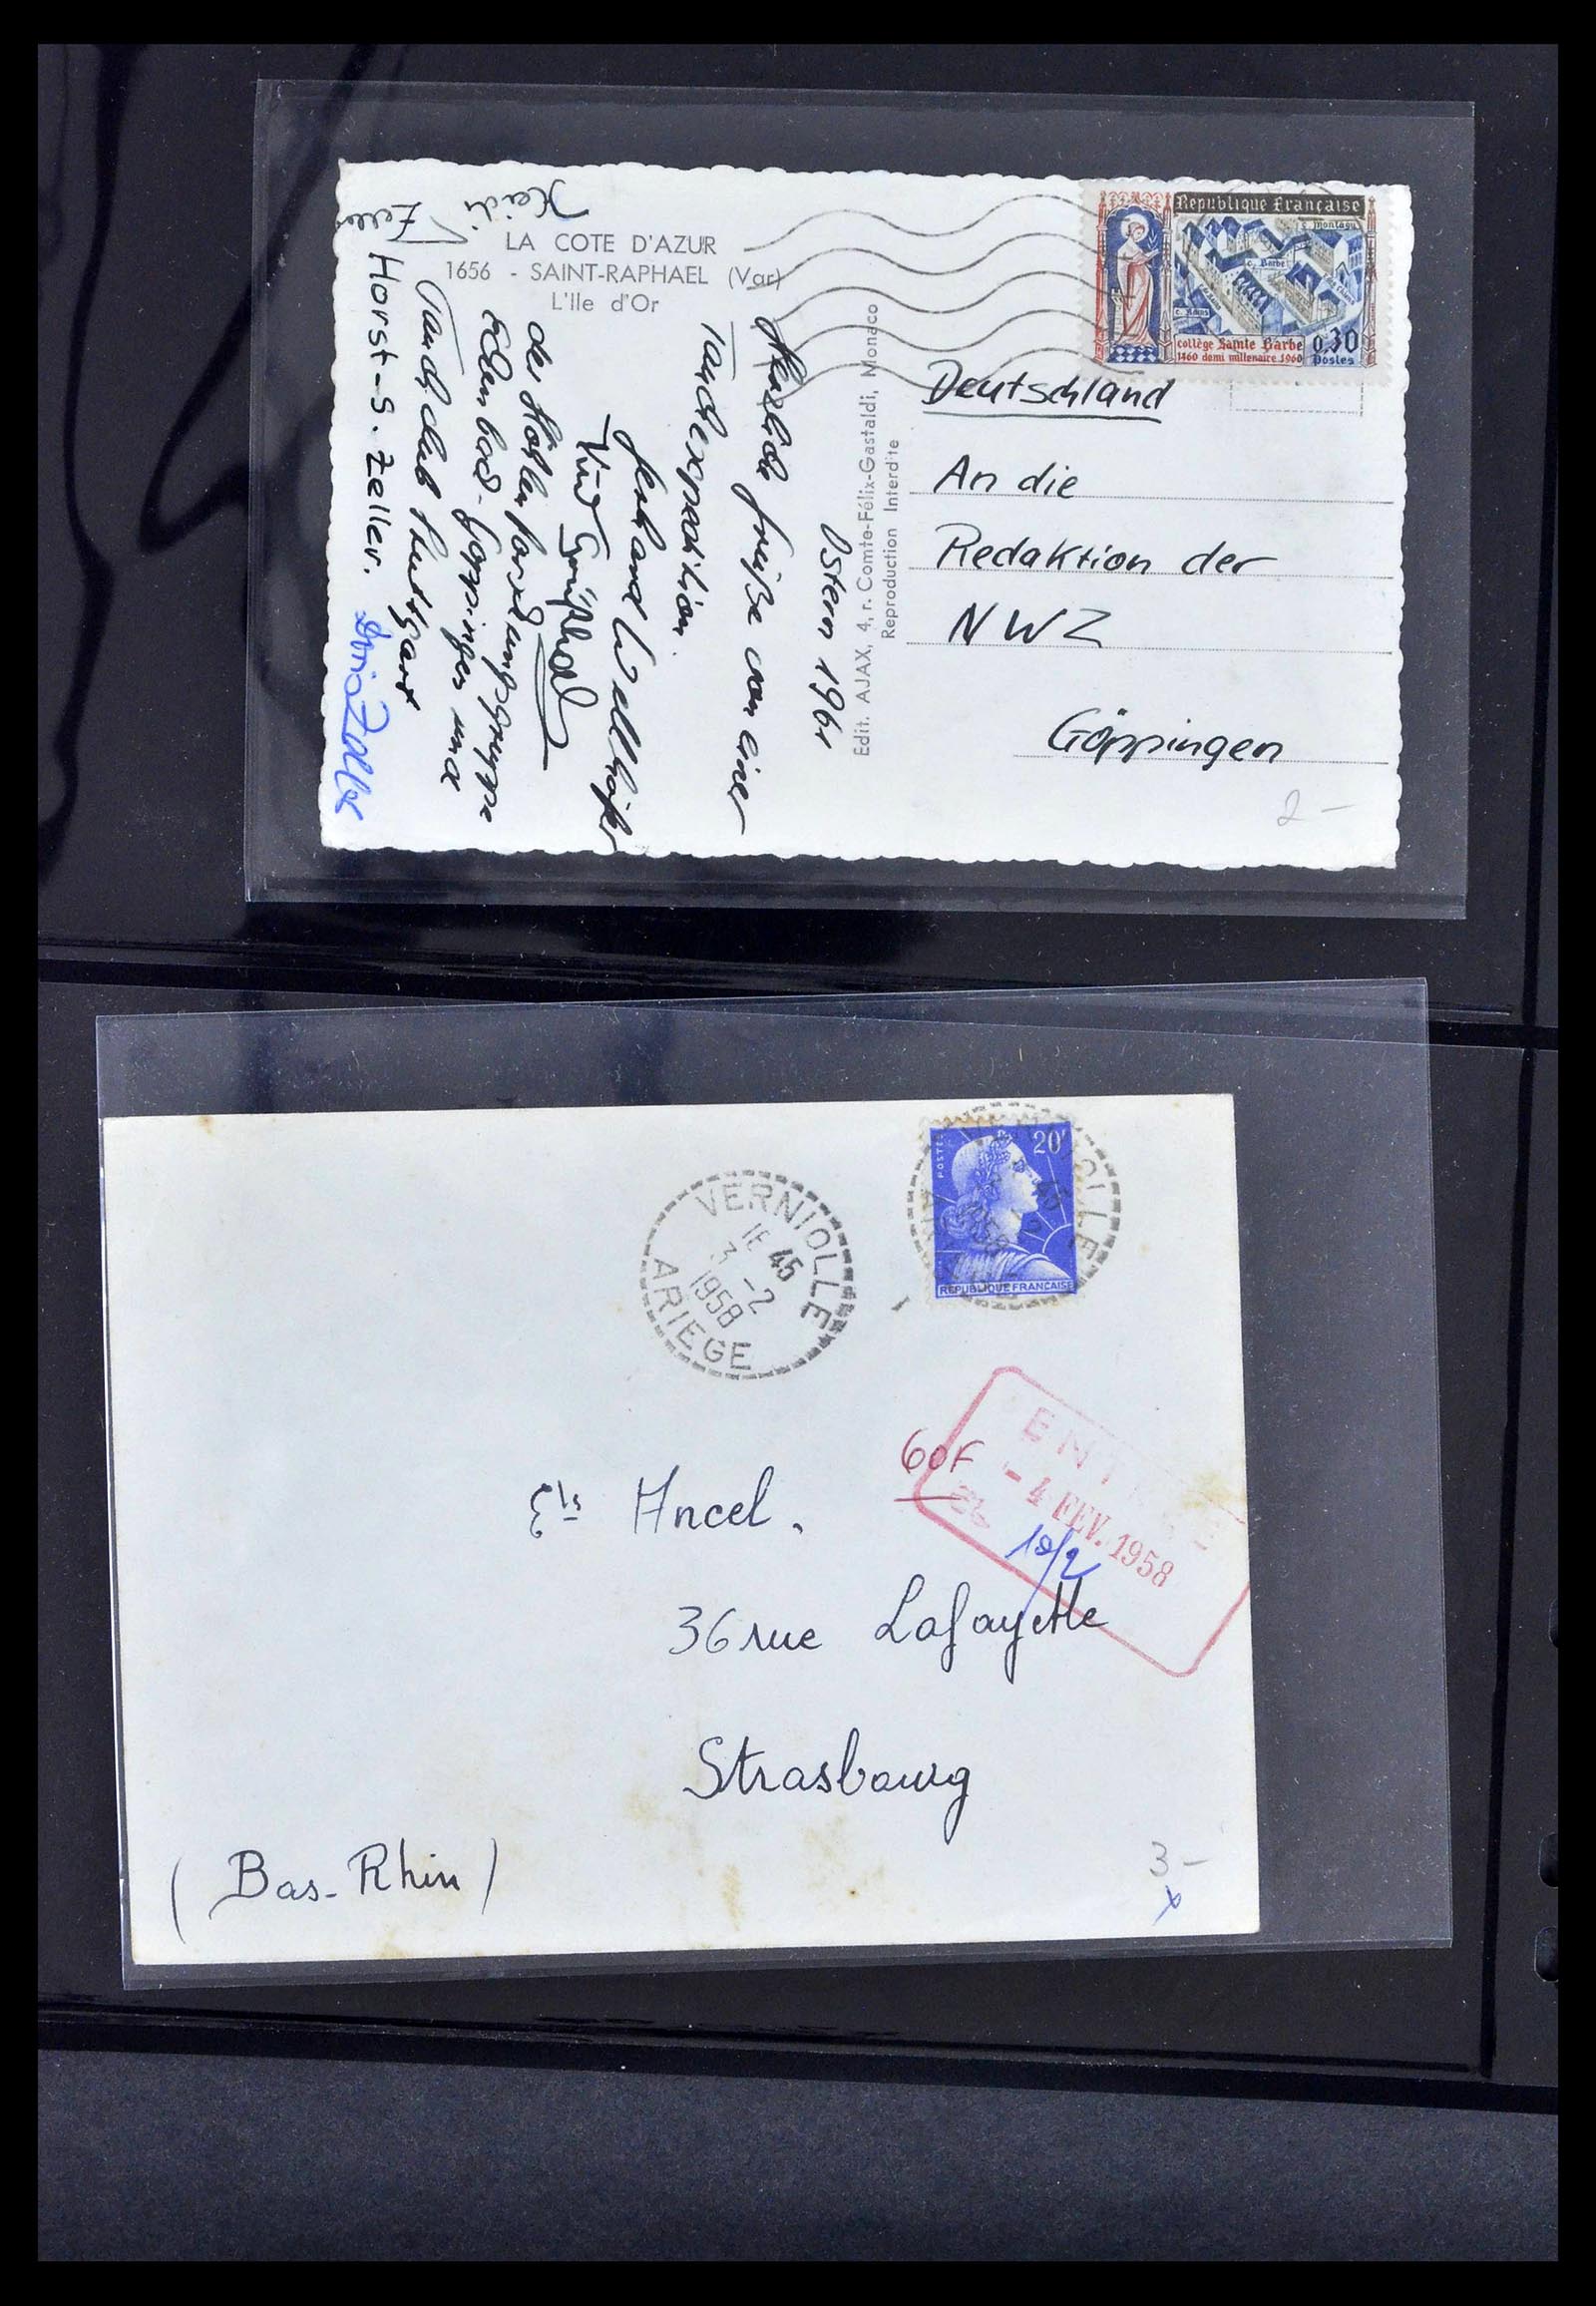 LA COTE D'AZUR
1656 - SAINT-RAPHAEL (Var)
L'Ile d'Or
Ostern 1961
Herzliche Grüße von einer
Tauchexpedition.
Gerhard
und
der Höhlenforschungsgruppe
Göppingen und
Tauchclub Stuttgart
Horst-S. Zeller.
Heidi
Zeller
Edit. AJAX, 4, r. Comte-Félix-Gastaldi, Monaco
Reproduction Interdite
République Française
c. Montagu
c. Barbe
c. Reims
collège Sainte Barbe
1460 demi millenaire 1960
0,30
Postes
Deutschland
An die
Redaktion der
NWZ
Göppingen
2-
VERNIOLLE
16 45
3 -2
1958
ARIEGE
POSTES
20F
REPUBLIQUE FRANÇAISE
60F
- 4 FEV. 1958
10/2
Ets Ancel.
36 rue Lafayette
Strasbourg
(Bas-Rhin)
3-
x